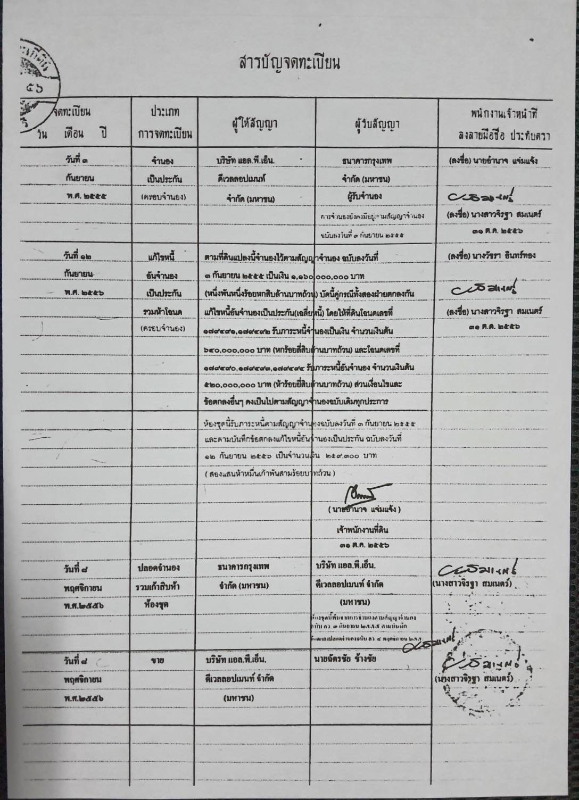 ๕๖
สารบัญจดทะเบียน
จดทะเบียน
วัน เดือน ปี
ประเภท
การจดทะเบียน
ผู้ให้สัญญา
ผู้รับสัญญา
พนักงานเจ้าหน้าที่
ลงลายมือชื่อ ประทับตรา
วันที่ ๓
กันยายน
พ.ศ. ๒๕๕๕
จำนอง
เป็นประกัน
(ครอบจำนอง)
บริษัท แอล.พี.เอ็น.
ดีเวลลอปเมนท์
จำกัด (มหาชน)
ธนาคารกรุงเทพ
จำกัด (มหาชน)
ผู้รับจำนอง
การจำนองยังคงมีอยู่ตามสัญญาจำนอง
ฉบับลงวันที่ ๓ กันยายน ๒๕๕๕
(ลงชื่อ) นายอำนาจ แจ่มแจ้ง
(ลงชื่อ) นางสาวจิรฐา สมเนตร์
๓๑ ต.ค. ๒๕๕๖
วันที่ ๑๒
กันยายน
พ.ศ. ๒๕๕๖
แก้ไขหนี้
อันจำนอง
เป็นประกัน
รวมห้าโฉนด
(ครอบจำนอง)
ตามที่ดินแปลงนี้จำนองไว้ตามสัญญาจำนอง ฉบับลงวันที่
๓ กันยายน ๒๕๕๕ เป็นเงิน ๑,๑๖๐,๐๐๐,๐๐๐ บาท
(หนึ่งพันหนึ่งร้อยหกสิบล้านบาทถ้วน) บัดนี้คู่กรณีทั้งสองฝ่ายตกลงกัน
แก้ไขหนี้อันจำนองเป็นประกัน(เฉลี่ยหนี้) โดยให้ที่ดินโฉนดเลขที่
รับภาระหนี้จำนองเป็นเงิน จำนวนเงินต้น
๖๔๐,๐๐๐,๐๐๐ บาท (หกร้อยสี่สิบล้านบาทถ้วน) และโฉนดเลขที่
รับภาระหนี้อันจำนอง จำนวนเงินต้น
๕๒๐,๐๐๐,๐๐๐ บาท (ห้าร้อยยี่สิบล้านบาทถ้วน) ส่วนเงื่อนไขและ
ข้อตกลงอื่นๆ คงเป็นไปตามสัญญาจำนองฉบับเดิมทุกประการ
(ลงชื่อ) นางวัชรา อินทร์ทอง
(ลงชื่อ) นางสาวจิรฐา สมเนตร์
๓๑ ต.ค. ๒๕๕๖
ห้องชุดนี้รับภาระหนี้ตามสัญญาจำนองฉบับลงวันที่ ๓ กันยายน ๒๕๕๕
และตามบันทึกข้อตกลงแก้ไขหนี้อันจำนองเป็นประกัน ฉบับลงวันที่
๑๒ กันยายน ๒๕๕๖ เป็นจำนวนเงิน ๒๕๙,๓๐๐ บาท
(สองแสนห้าหมื่นเก้าพันสามร้อยบาทถ้วน)
(นายอำนาจ แจ่มแจ้ง)
เจ้าพนักงานที่ดิน
๓๑ ต.ค. ๒๕๕๖
วันที่ ๘
พฤศจิกายน
พ.ศ.๒๕๕๖
ปลอดจำนอง
รวมเก้าสิบห้า
ห้องชุด
ธนาคารกรุงเทพ
จำกัด (มหาชน)
บริษัท แอล.พี.เอ็น.
ดีเวลลอปเมนท์ จำกัด
(มหาชน)
(นางสาวจิรฐา สมเนตร์)
วันที่ ๘
พฤศจิกายน
พ.ศ.๒๕๕๖
ขาย
บริษัท แอล.พี.เอ็น.
ดีเวลลอปเมนท์ จำกัด
(มหาชน)
นายฉัตรชัย ช้างชัย
(นางสาวจิรฐา สมเนตร์)